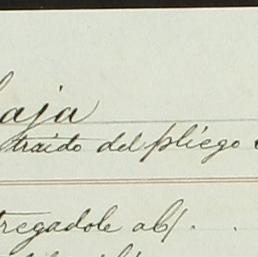 aja
traido del pliego
tregadole ab/. .